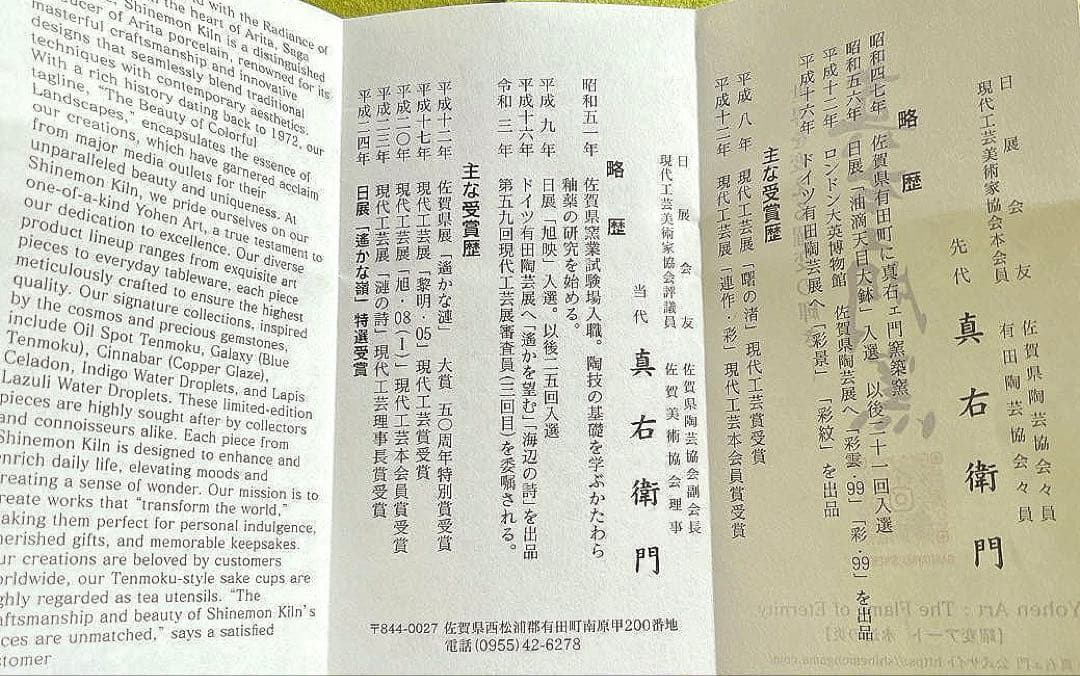 d with the Radiance of
the heart of Arita, Saga
ucer of Arita porcelain, renowned for its
Shinemon Kiln is a distinguished
masterful craftsmanship and innovative
designs that seamlessly blend traditional
techniques with contemporary aesthetics.
With a rich history dating back to 1972, our
tagline, "The Beauty of Colorful
Landscapes," encapsulates the essence of
our creations, which have garnered acclaim
from major media outlets for their
unparalleled beauty and uniqueness. At
Shinemon Kiln, we pride ourselves on our
one-of-a-kind Yohen Art, a true testament to
our dedication to excellence. Our diverse
product lineup ranges from exquisite art
pieces to everyday tableware, each piece
meticulously crafted to ensure the highest
quality. Our signature collections, inspired
by the cosmos and precious gemstones,
include Oil Spot Tenmoku, Galaxy (Blue
Tenmoku), Cinnabar (Copper Glaze),
Celadon, Indigo Water Droplets, and Lapis
Lazuli Water Droplets. These limited-edition
pieces are highly sought after by collectors
and connoisseurs alike. Each piece from
Shinemon Kiln is designed to enhance and
enrich daily life, elevating moods and
creating a sense of wonder. Our mission is to
create works that "transform the world,"
making them perfect for personal indulgence,
cherished gifts, and memorable keepsakes.
ur creations are beloved by customers
orldwide, our Tenmoku-style sake cups are
ghly regarded as tea utensils. "The
aftsmanship and beauty of Shinemon Kiln's
ces are unmatched," says a satisfied
stomer
日展会友 佐賀県陶芸協会々員
現代工芸美術家協会本会員 有田陶芸協会々員
先代 真右衛門
略歴
昭和四七年 佐賀県有田町に真右ェ門窯築窯
昭和五六年 日展「油滴天目大鉢」入選 以後二十一回入選
平成十二年 ロンドン大英博物館 佐賀県陶芸展へ「彩雲・99」「彩・99」を出品
平成十六年 ドイツ有田陶芸展へ「彩景」「彩紋」を出品
主な受賞歴
平成八年 現代工芸展「曙の渚」現代工芸賞受賞
平成十二年 現代工芸展「連作・彩」現代工芸本会員賞受賞
日展会友 佐賀県陶芸協会副会長
現代工芸美術家協会評議員 佐賀美術協会理事
当代 真右衛門
略歴
昭和五一年 佐賀県窯業試験場入職。陶技の基礎を学ぶかたわら
釉薬の研究を始める。
平成九年 日展「旭映」入選。以後二五回入選
平成十六年 ドイツ有田陶芸展へ「遙かを望む」「海辺の詩」を出品
令和三年 第五九回現代工芸展審査員(三回目)を委嘱される。
主な受賞歴
平成十二年 佐賀県展「遙かな漣」大賞 五〇周年特別賞受賞
平成十七年 現代工芸展「黎明・05」現代工芸賞受賞
平成二〇年 現代工芸展「旭・08(Ⅰ)」現代工芸本会員賞受賞
平成二三年 現代工芸展「漣の詩」現代工芸理事長賞受賞
平成二四年 日展「遙かな嶺」特選受賞
〒844-0027 佐賀県西松浦郡有田町南原甲200番地
電話(0955)42-6278
Yohen Art : The Flame of Eternity